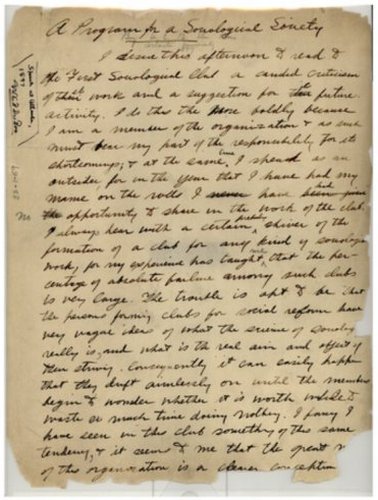 A Program for a Sociological Society
I desire this afternoon to read to
the First Sociological Club a candid criticism
of their work and a suggestion for the future
activity. I do this the more boldly because
I am a member of the organization & as such
must bear my part of the responsibility for its
shortcomings; & at the same time I speak as an
outsider, for in the year that I have had my
name on the rolls I have had
no opportunity to share in the work of the club.
I always hear with a certain shiver of the
formation of a club for any kind of sociological
work, for my experience has taught me that the per-
centage of absolute failure among such clubs
is very large. The trouble is apt to be that
the persons forming clubs for social reform have
very vague ideas of what the science of sociology
really is, and what is the real aim and object of
their striving. Consequently it can easily happen
that they drift aimlessly on until the members
begin to wonder whether it is worth while to
waste so much time doing nothing. I fancy I
have seen in this club something of this same
tendency, & it seems to me that the great
of this organization is a clearer conception